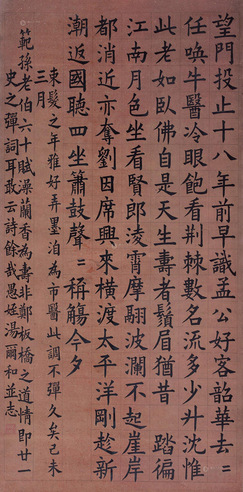 望門投止十八年前早識孟公好客韶華去〻
任喚牛醫冷眼飽看荆棘數名流多少升沈惟
此老如臥佛自是天生壽者鬚眉猶昔 踏徧
江南月色坐看賢郎淩霄摩翮波瀾不起崖岸
都消近亦奪劉因席興來橫渡太平洋剛趁新
潮返國聽四坐簫鼓聲〻稱觴今夕
束髮之年雅好弄墨洎為市醫此調不彈久矣己未
三月
範孫老伯六十賦瀑蘭香為壽非鄭板橋之道情即廿一
史之彈詞耳敢云詩餘哉愚姪湯爾和並志